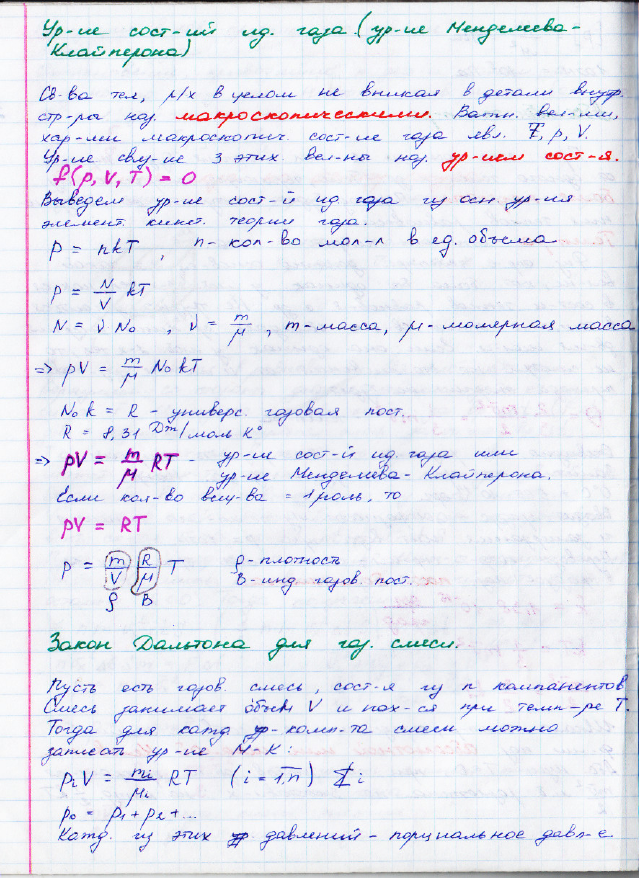 Ур-ие сост-ий ид. газа (ур-ие Менделеева-
Клайперона)
Св-ва тел, р/х в целом не вникая в детали внутр.
стр-ры наз. макроскопическими. Важн. вел-ми,
хар-ми макроскопич. сост-ие газа явл. T, p, V.
Ур-ие свяу-ие 3 этих вел-ны наз. ур-ием сост-я.
f(p, V, T) = 0
Выведем ур-ие сост-й ид. газа из осн. ур-ия
элемент. кинет. теории газа.
p = nkT , n - кол-во мол-л в ед. объема
p = N/V kT
N = ν N₀ , ν = m/μ , m-масса, μ-молярная масса
=> pV = m/μ N₀ kT
N₀ k = R - универс. газовая пост.
R = 8,31 Дж/моль K°
=> pV = m/μ RT - ур-ие сост-й ид. газа или
ур-ие Менделеева-Клайперона.
Если кол-во вещ-ва = 1 моль, то
pV = RT
p = m/V R/μ T ρ-плотность
ρ B B-инд газов. пост.
Закон Дальтона для газ. смеси.
Пусть есть газов. смесь, сост-я из n компанентов
Смесь занимает объем V и нах-ся при темп-ре T.
Тогда для кажд комп-та смеси можно
записать ур-ие М-К:
pᵢV = mᵢ/μᵢ RT (i = 1,n) Σ i
p₀ = p₁ + p₂ + ...
Кажд. из этих давлений - парциальное давл-е